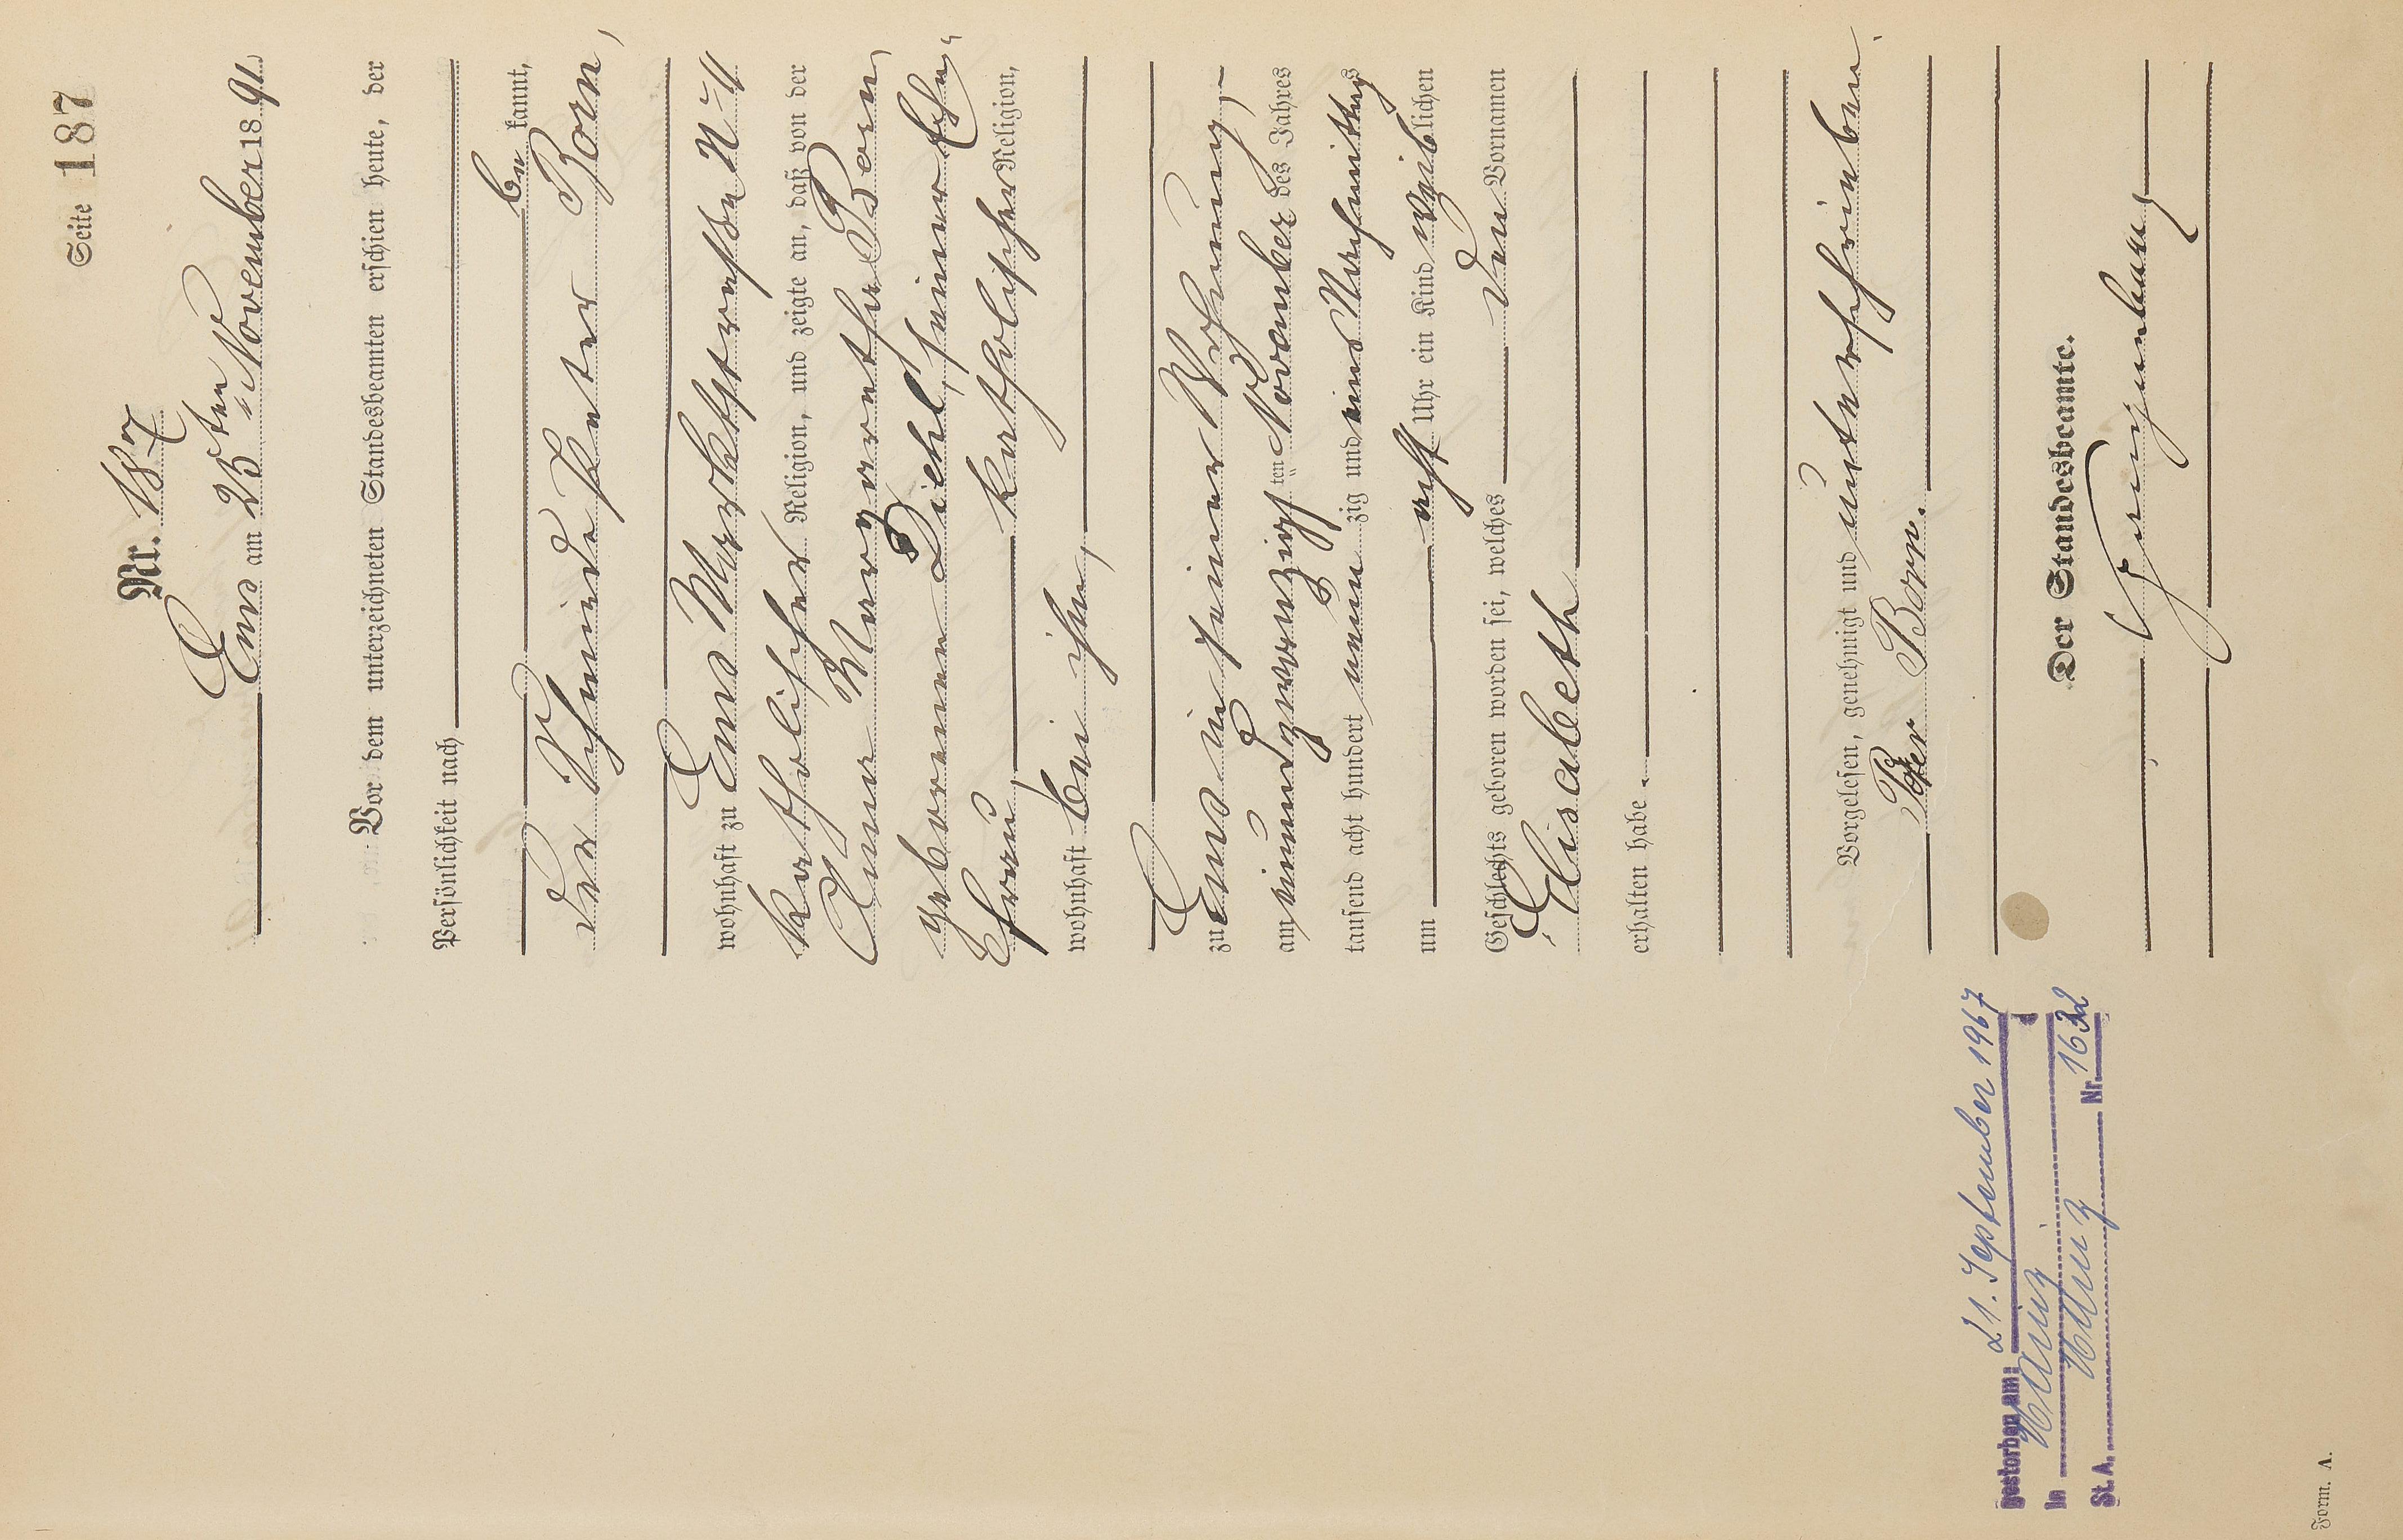 Seite 187
Nr. 187
Ems am 25ten November 18 91.
Vor dem unterzeichneten Standesbeamten erschien heute, der
Persönlichkeit nach
be kannt,
der Schmied Peter Born,
wohnhaft zu Ems Marktstraße N
katholischer Religion, und zeigte an, daß von der
Anna Margaretha Born
geborenen Diehl, seiner Ehe-
frau, katholischer Religion,
wohnhaft bei ihm,
zu Ems in seiner Wohnung,
am einundzwanzigsten November des Jahres
tausend acht hundert neun zig und eins Nachmittags
um acht Uhr ein Kind weiblichen
Geschlechts geboren worden sei, welches den Vornamen
Elisabeth
erhalten habe.
Vorgelesen, genehmigt und unterschrieben.
Peter Born.
Der Standesbeamte.
gestorben am: 21. September 1967
in Mainz
St. A. Mainz Nr. 1632
Form. A.